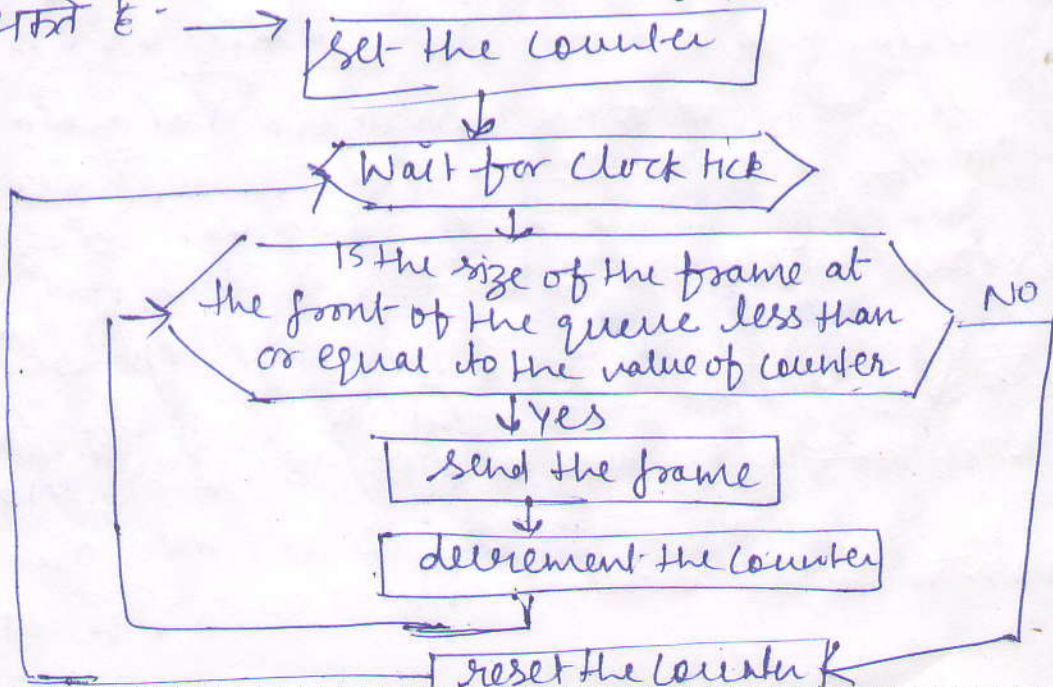 है -
set the counter
Wait for clock tick
Is the size of the frame at
the front of the queue less than
or equal to the value of counter
NO
Yes
send the frame
decrement the counter
reset the counter